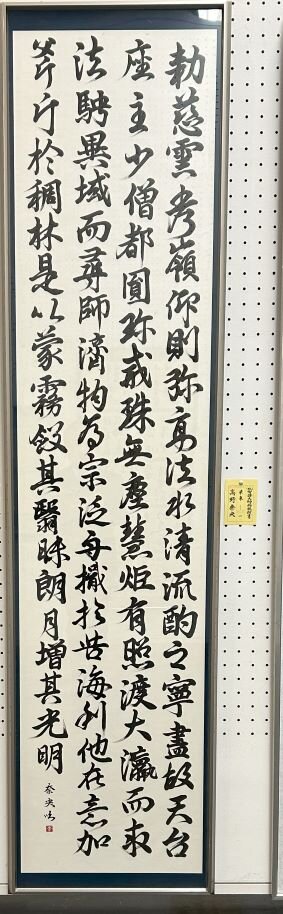 勅慈雲秀嶺仰則弥高法水清流酌之寧盡故天台
座主少僧都圓珎戒珠無塵慧炬有照渡大瀛而求
法騁異域而尋師濟物為宗泛舟檝於苦海利他在意加
斧斤於稠林是以蒙霧斂其翳昧朗月増其光明
奈央
高野奈央